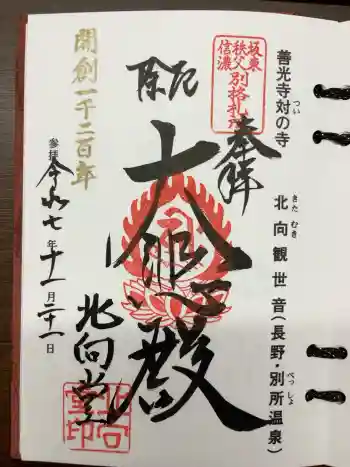 善光寺対の寺
つい
北向観世音(長野・別所温泉)
きた むき
べっしょ
坂東
秩父
信濃
別格札所
奉拝
厄除
大悲殿
北向堂
開創一千二百年
参拝
令和七年十一月二十一日